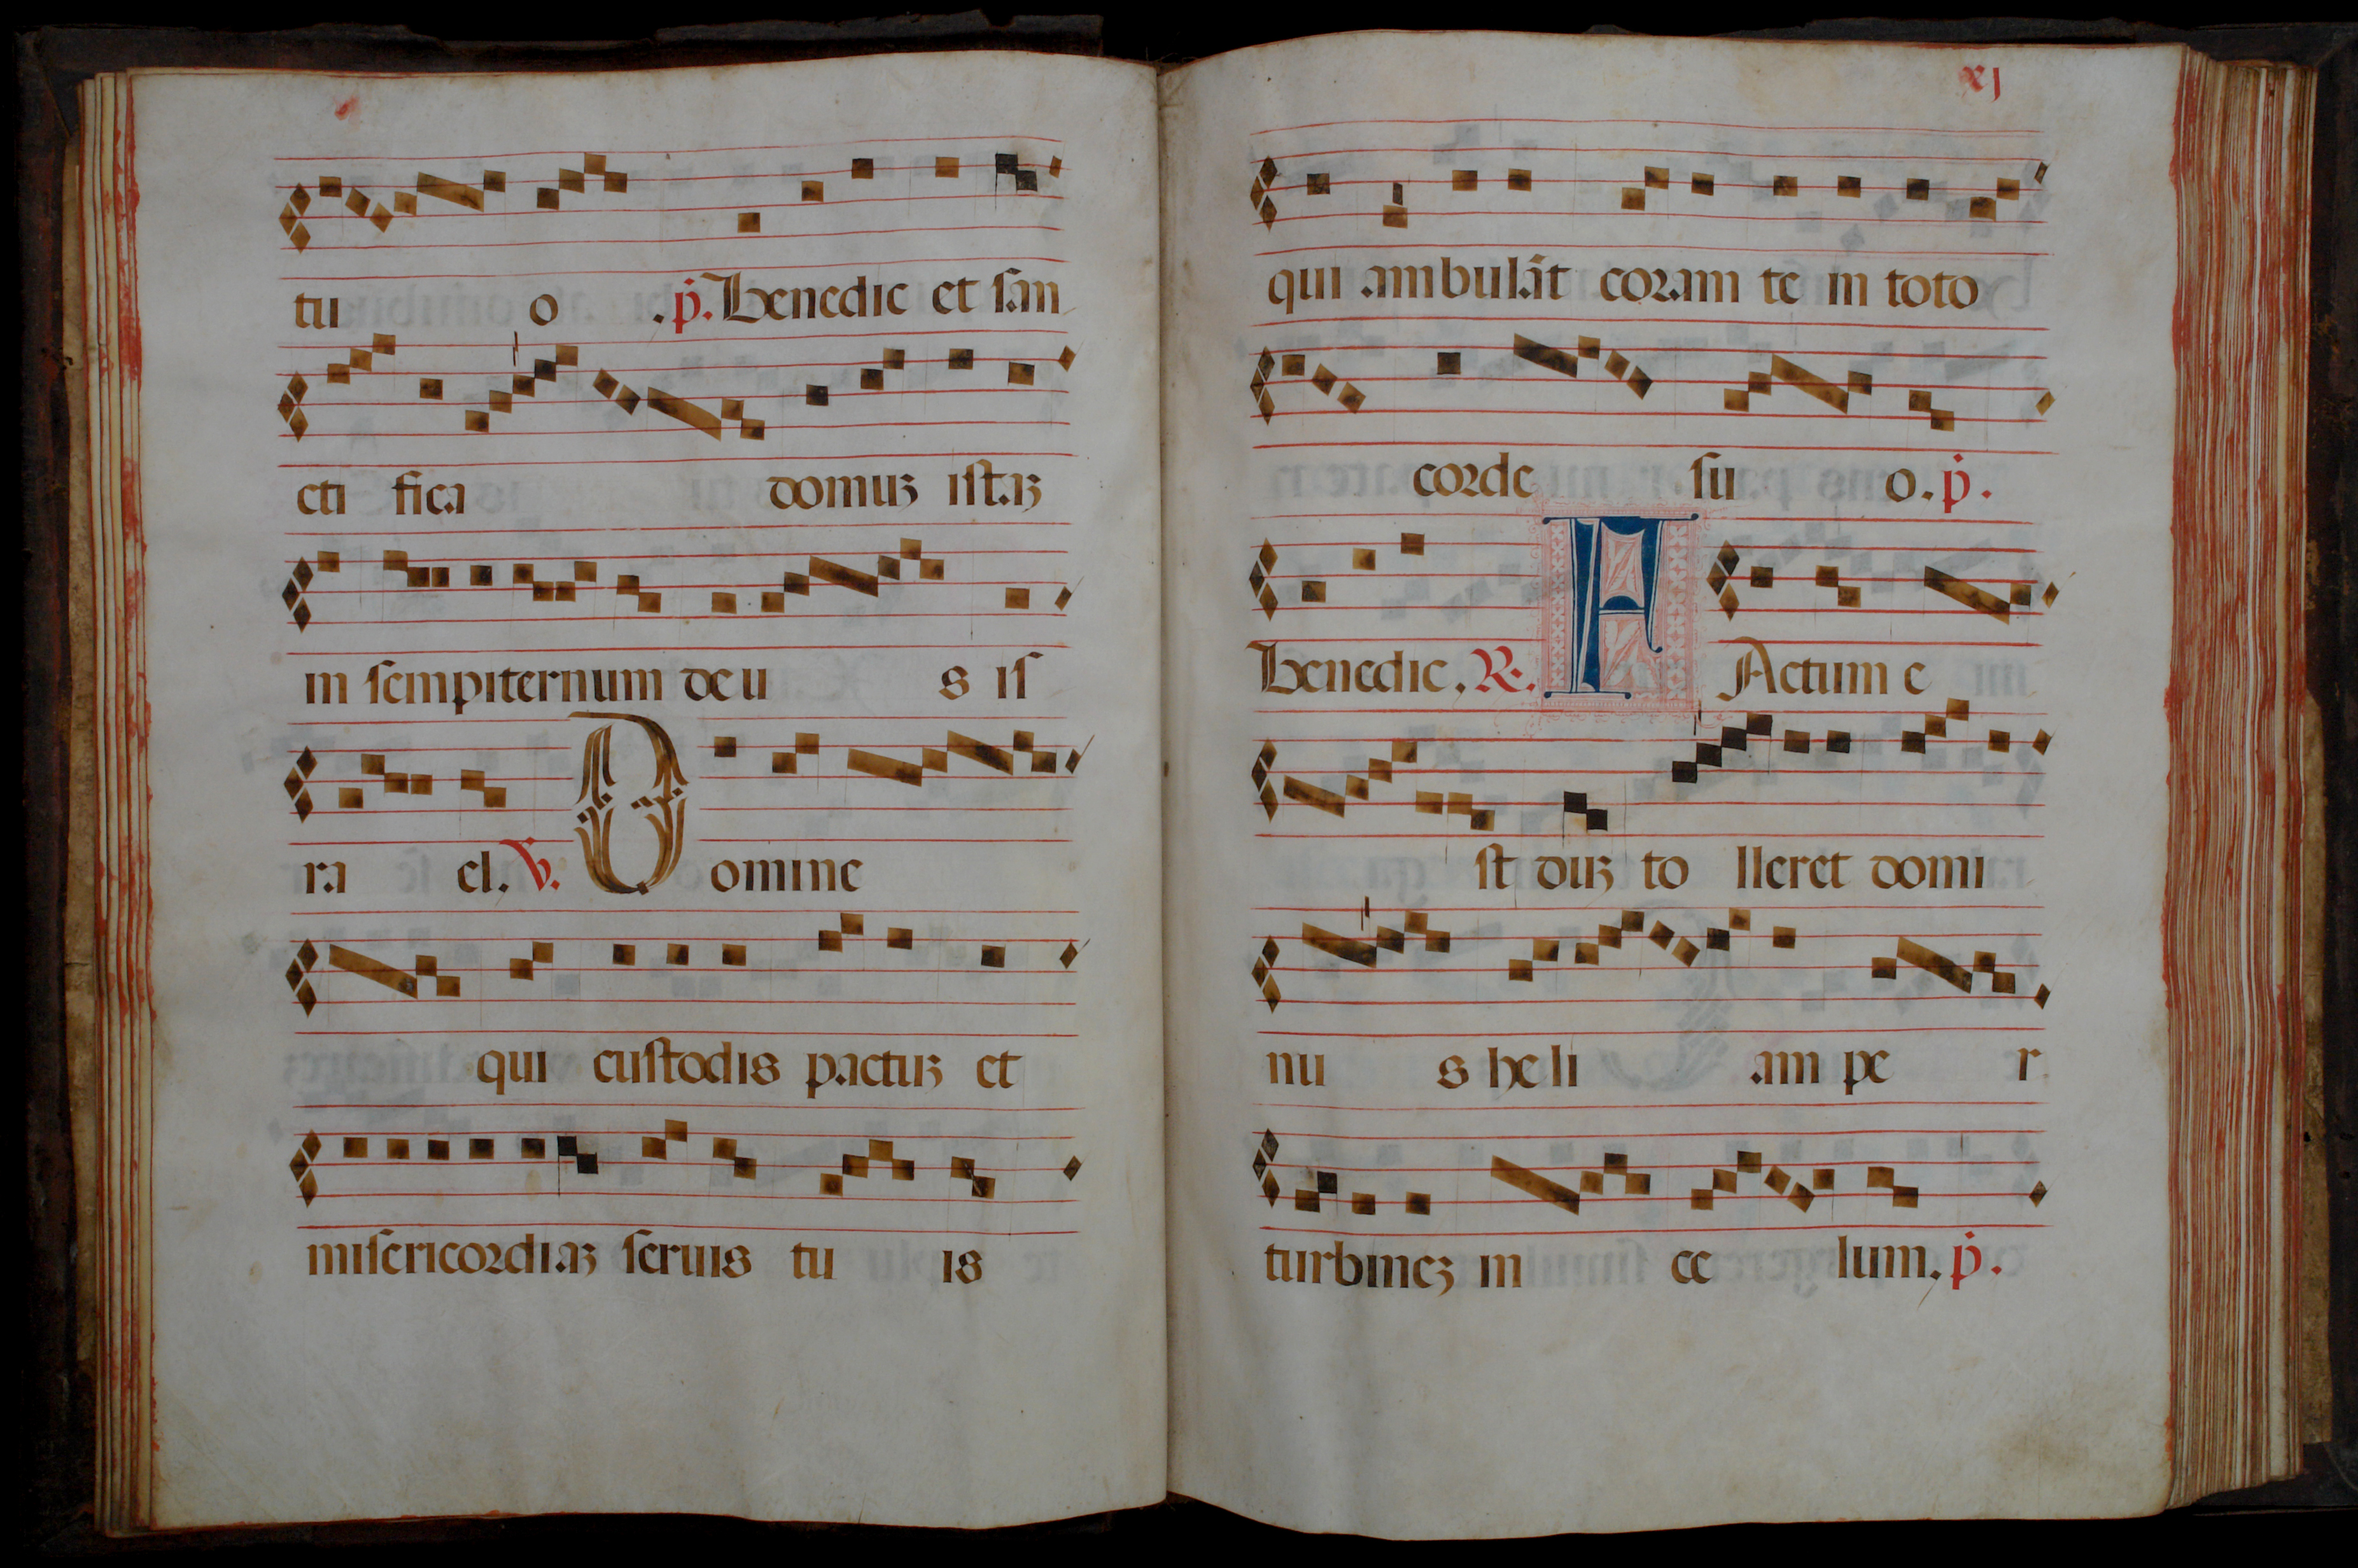 tu o .p̄. Benedic et san
cti fica domuʒ istaʒ
in sempiternum deu s is
ra el. V. Domine
qui custodis pactuʒ et
misericordiaʒ seruis tu is
xj
qui ambulāt coram te in toto
corde su o. p̄.
Benedic. R. FActum e
st duʒ to lleret domi
nu s heli am pe r
turbineʒ in ce lum. p̄.